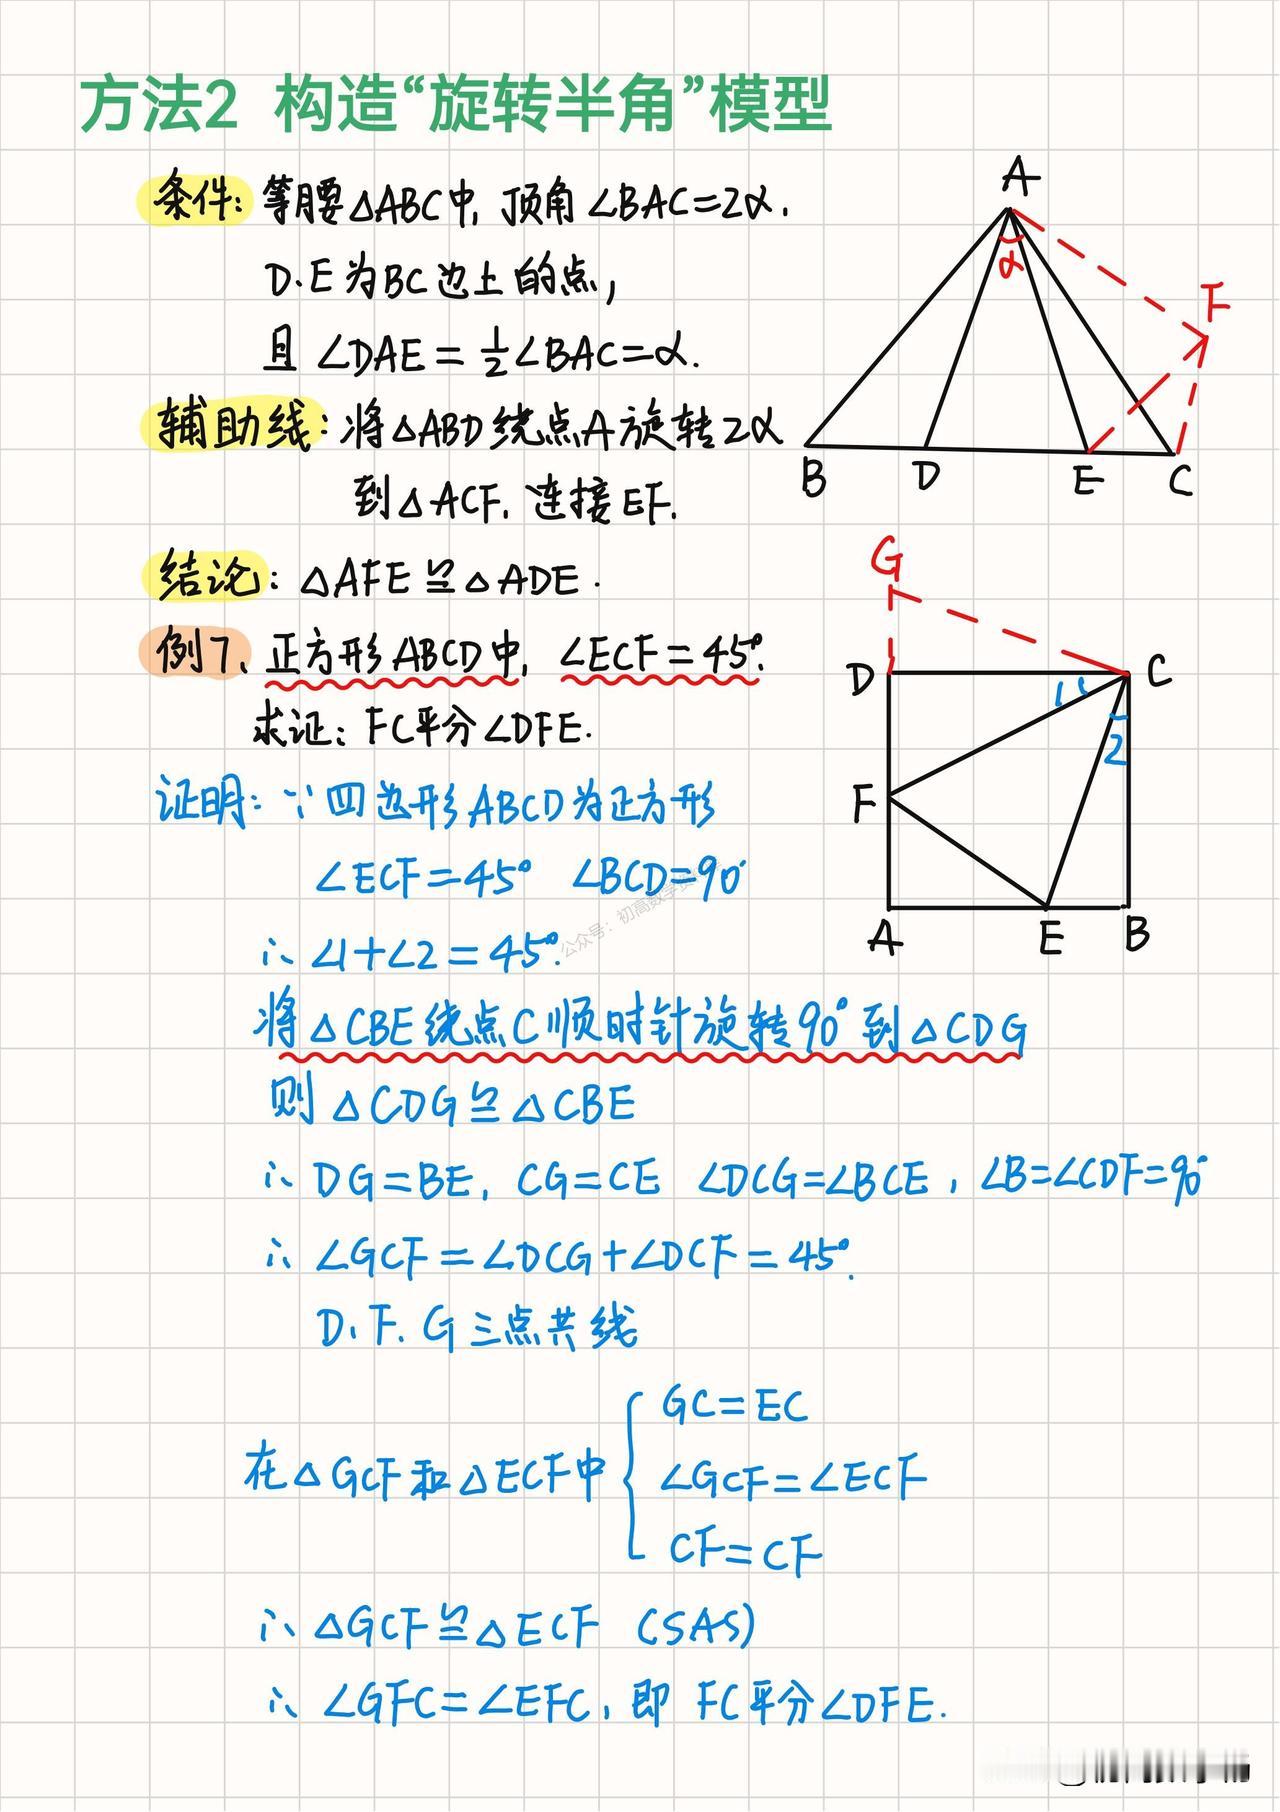 方法2 构造“旋转半角”模型
条件: 等腰△ABC中, 顶角∠BAC=2α.
D.E为BC边上的点,
且 ∠DAE=½∠BAC=α.
辅助线: 将△ABD绕点A旋转2α
到△ACF. 连接EF.
结论: △AFE≌△ADE.
A
α
F
B D E C
例7、正方形ABCD中, ∠ECF=45°.
求证: FC平分∠DFE.
G
D C
1
2
F
A E B
证明: ∵四边形ABCD为正方形
∠ECF=45° ∠BCD=90°
∴ ∠1+∠2=45°.
公众号：初高数学
将△CBE绕点C顺时针旋转90°到△CDG
则△CDG≌△CBE
∴ DG=BE, CG=CE ∠DCG=∠BCE, ∠B=∠CDF=90°
∴ ∠GCF=∠DCG+∠DCF=45°.
D.F.G三点共线
在△GCF和△ECF中
GC=EC
∠GCF=∠ECF
CF=CF
∴ △GCF≌△ECF (SAS)
∴ ∠GFC=∠EFC, 即 FC平分∠DFE.